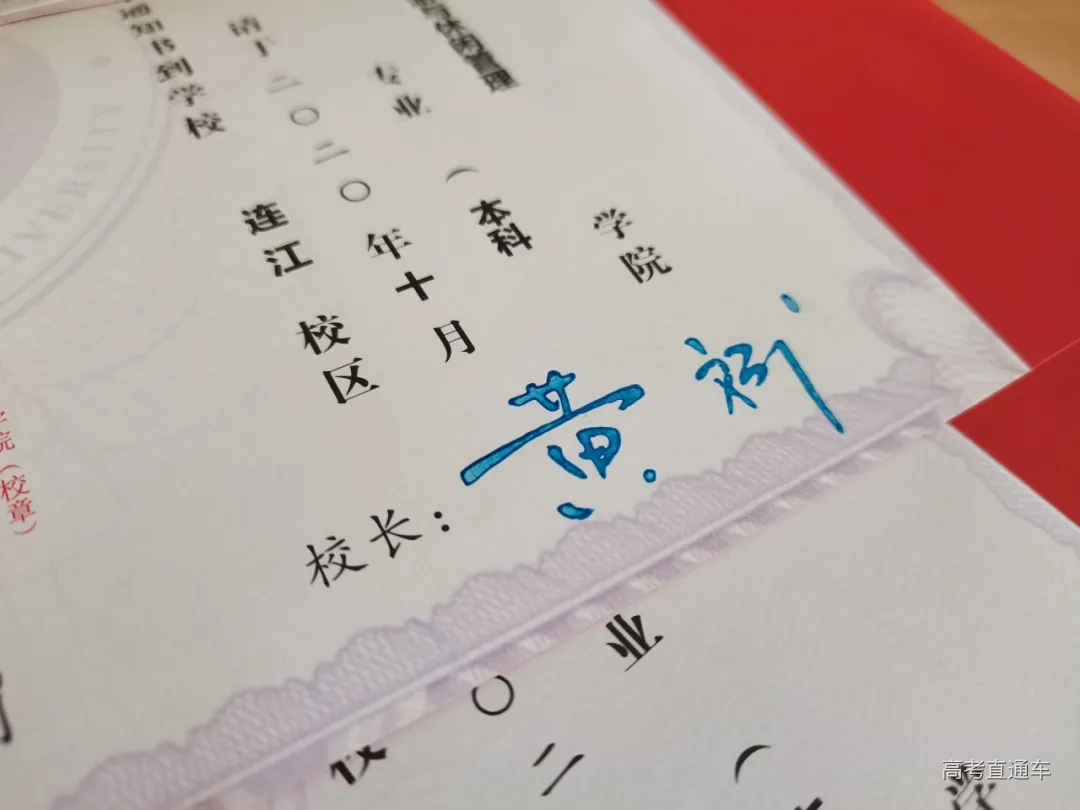 学院
与休闲管理
专业（本科
请于二〇二〇年十月
连江校区
通知书到学校
校长：
黄
UNIVERSITY
学院（校章）
业
〇
二
（
校
学
高考直通车